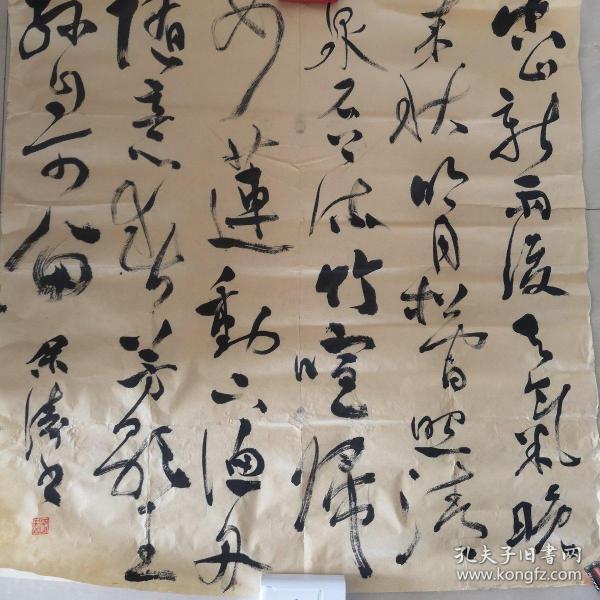 空山新雨後天氣晚
来秋明月松間照清
泉石上流竹喧歸
女蓮動下漁舟
隨意春芳歇王
孫自可留
書
孔夫子旧书网
www.kongfz.com